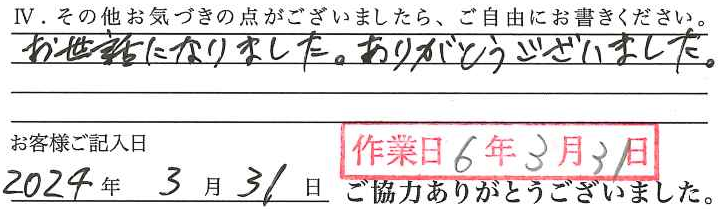 Ⅳ．その他お気づきの点がございましたら、ご自由にお書きください。
お世話になりました。ありがとうございました。
お客様ご記入日
作業日6年3月31日
2024年 3月31日
ご協力ありがとうございました。